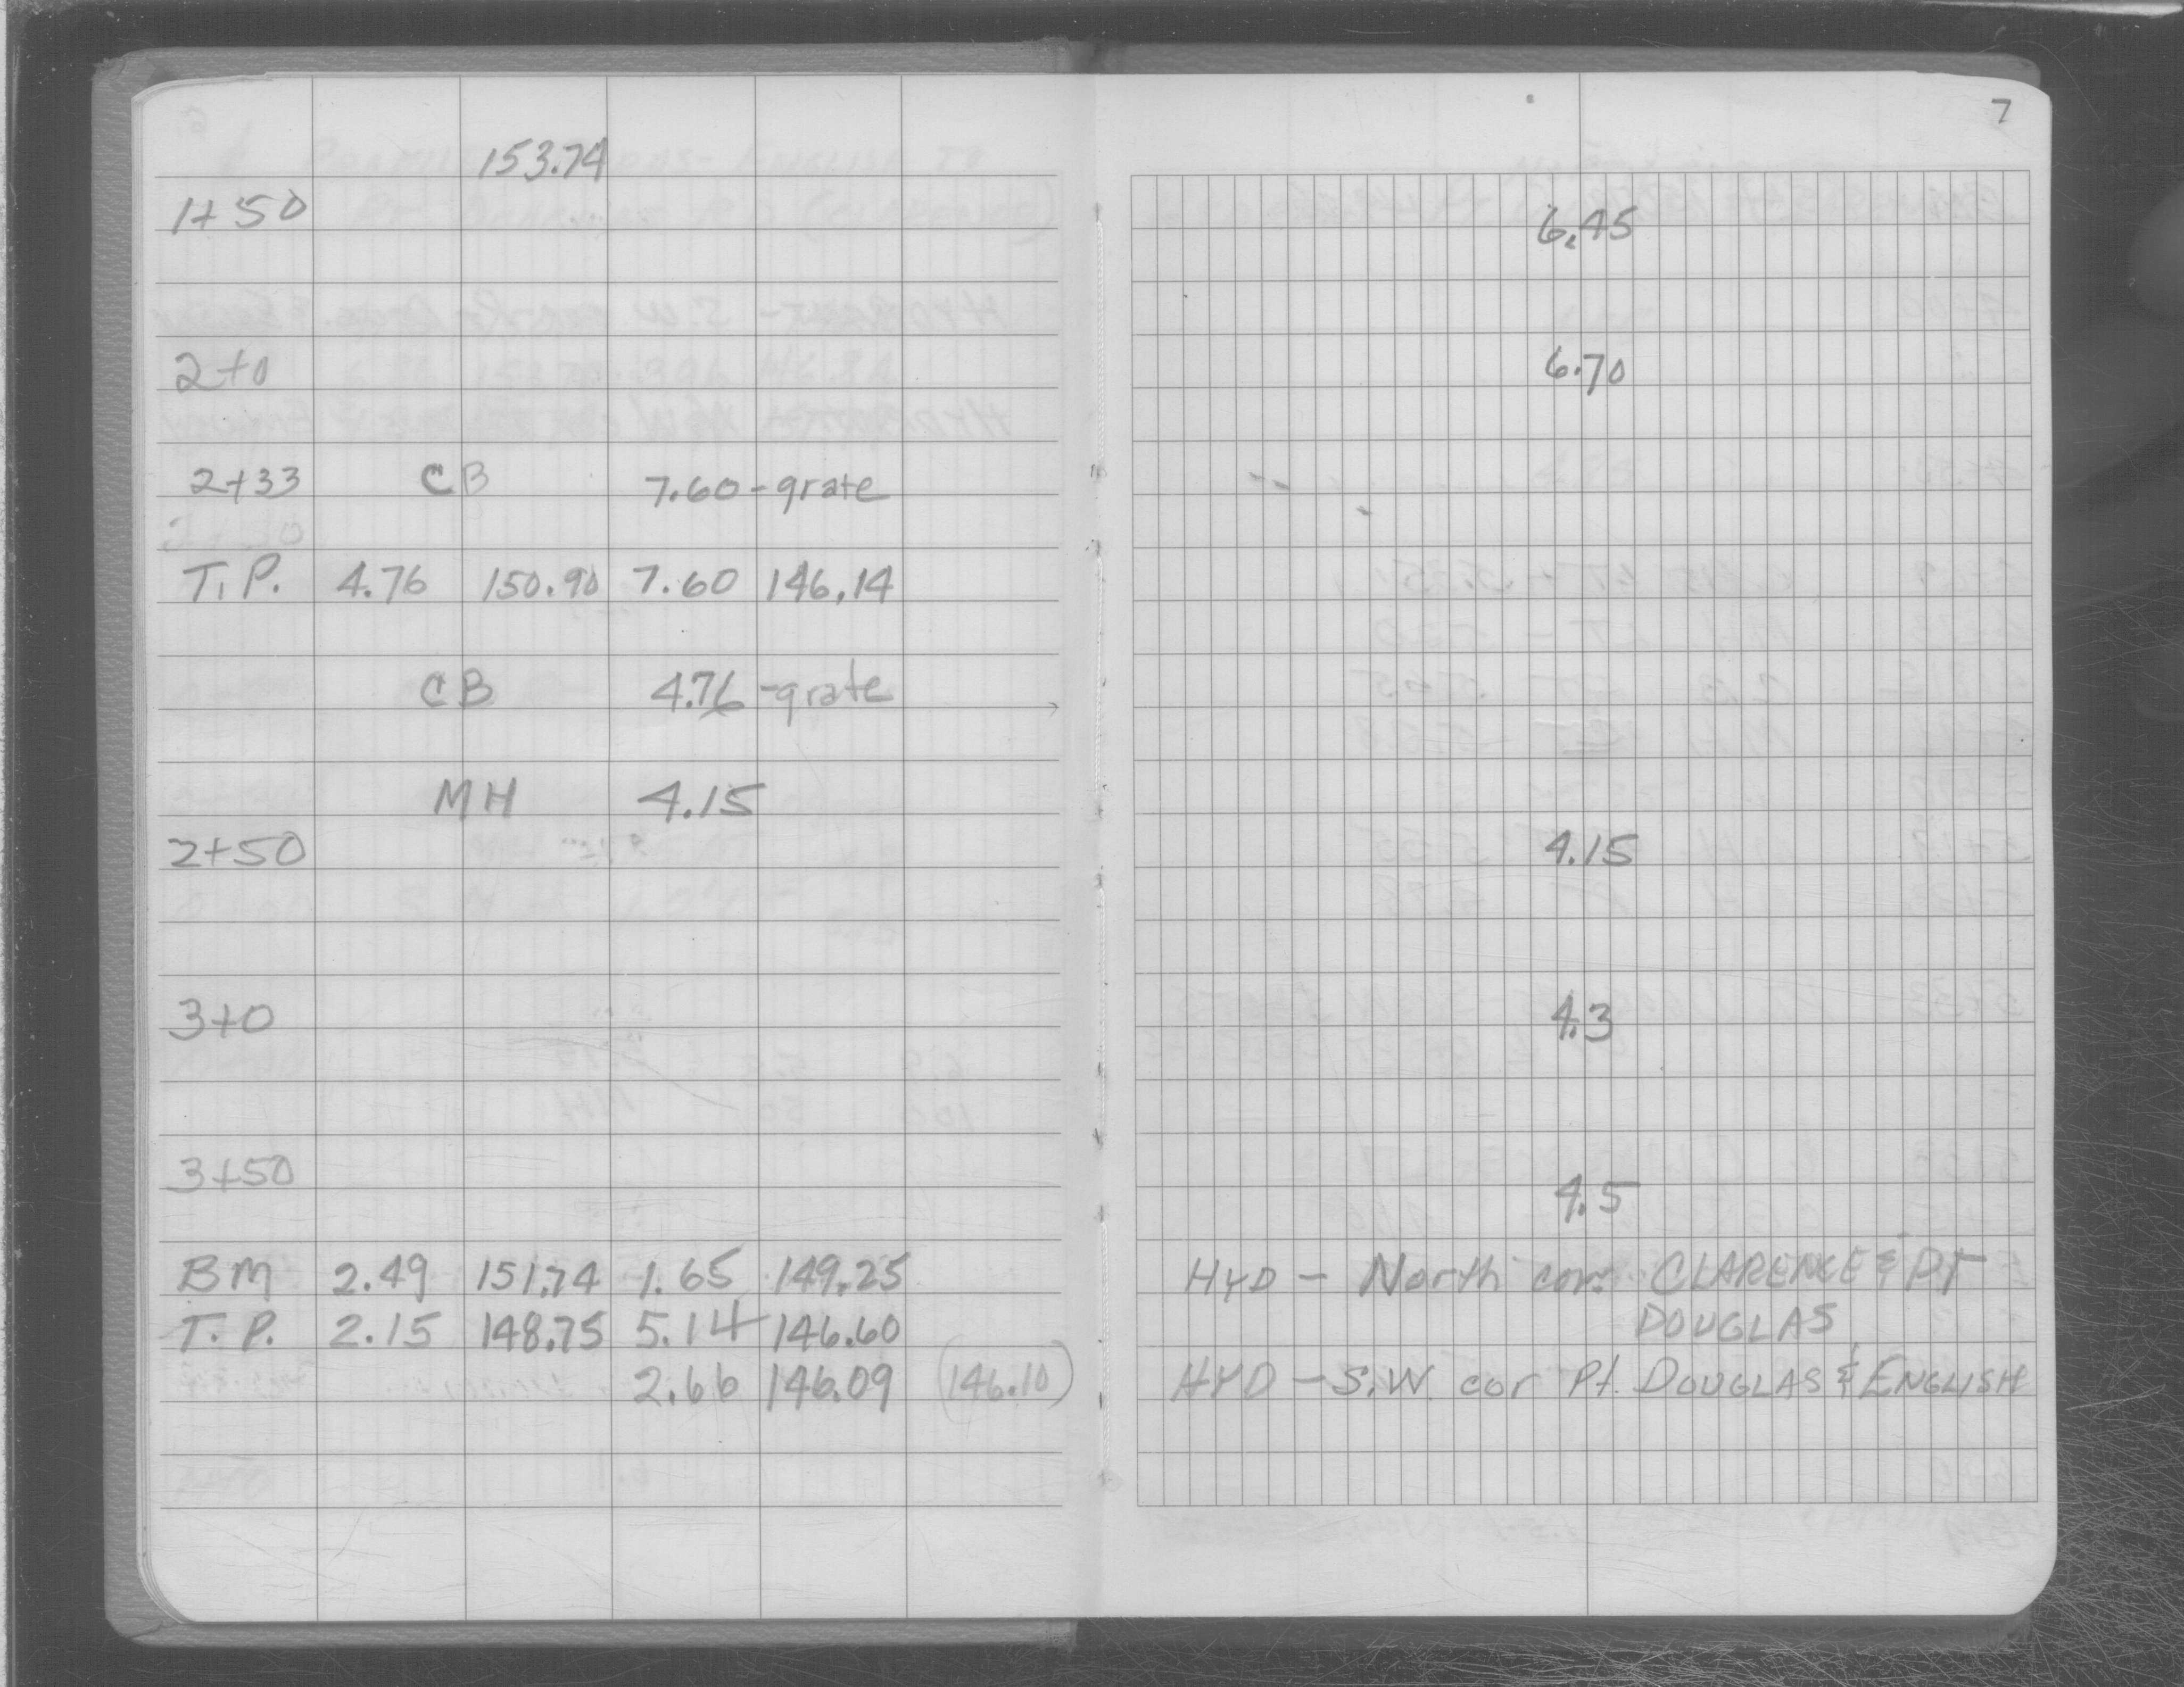 7
153.74
1+50 6.45
2+0 6.70
2+33 CB 7.60-grate
T.P. 4.76 150.90 7.60 146.14
CB 4.76-grate
MH 4.15
2+50 4.15
3+0 4.3
3+50 4.5
BM 2.49 151.74 1.65 149.25 HYD - North cor. CLARENCE & PT
DOUGLAS
T. P. 2.15 148.75 5.14 146.60
2.66 146.09 (146.10) HYD - S.W. cor Pt. DOUGLAS & ENGLISH